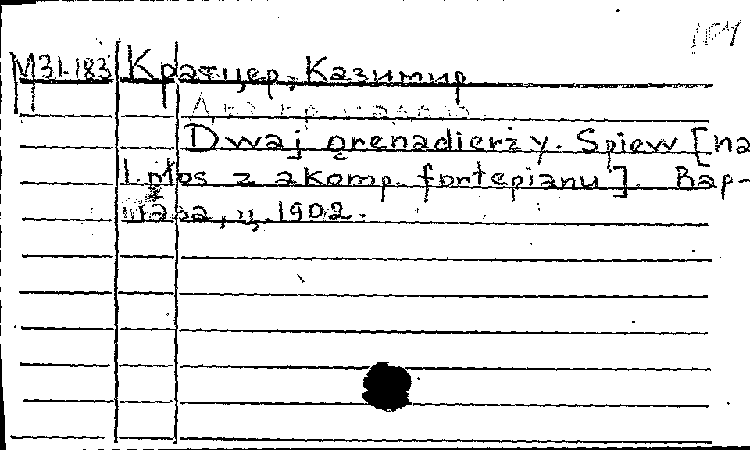 М31-183 Кратцер, Казимир
Dwaj grenadierży. Spiew [na
1 głos z akomp. fortepianu]. Вар-
шава, ц. 1902.